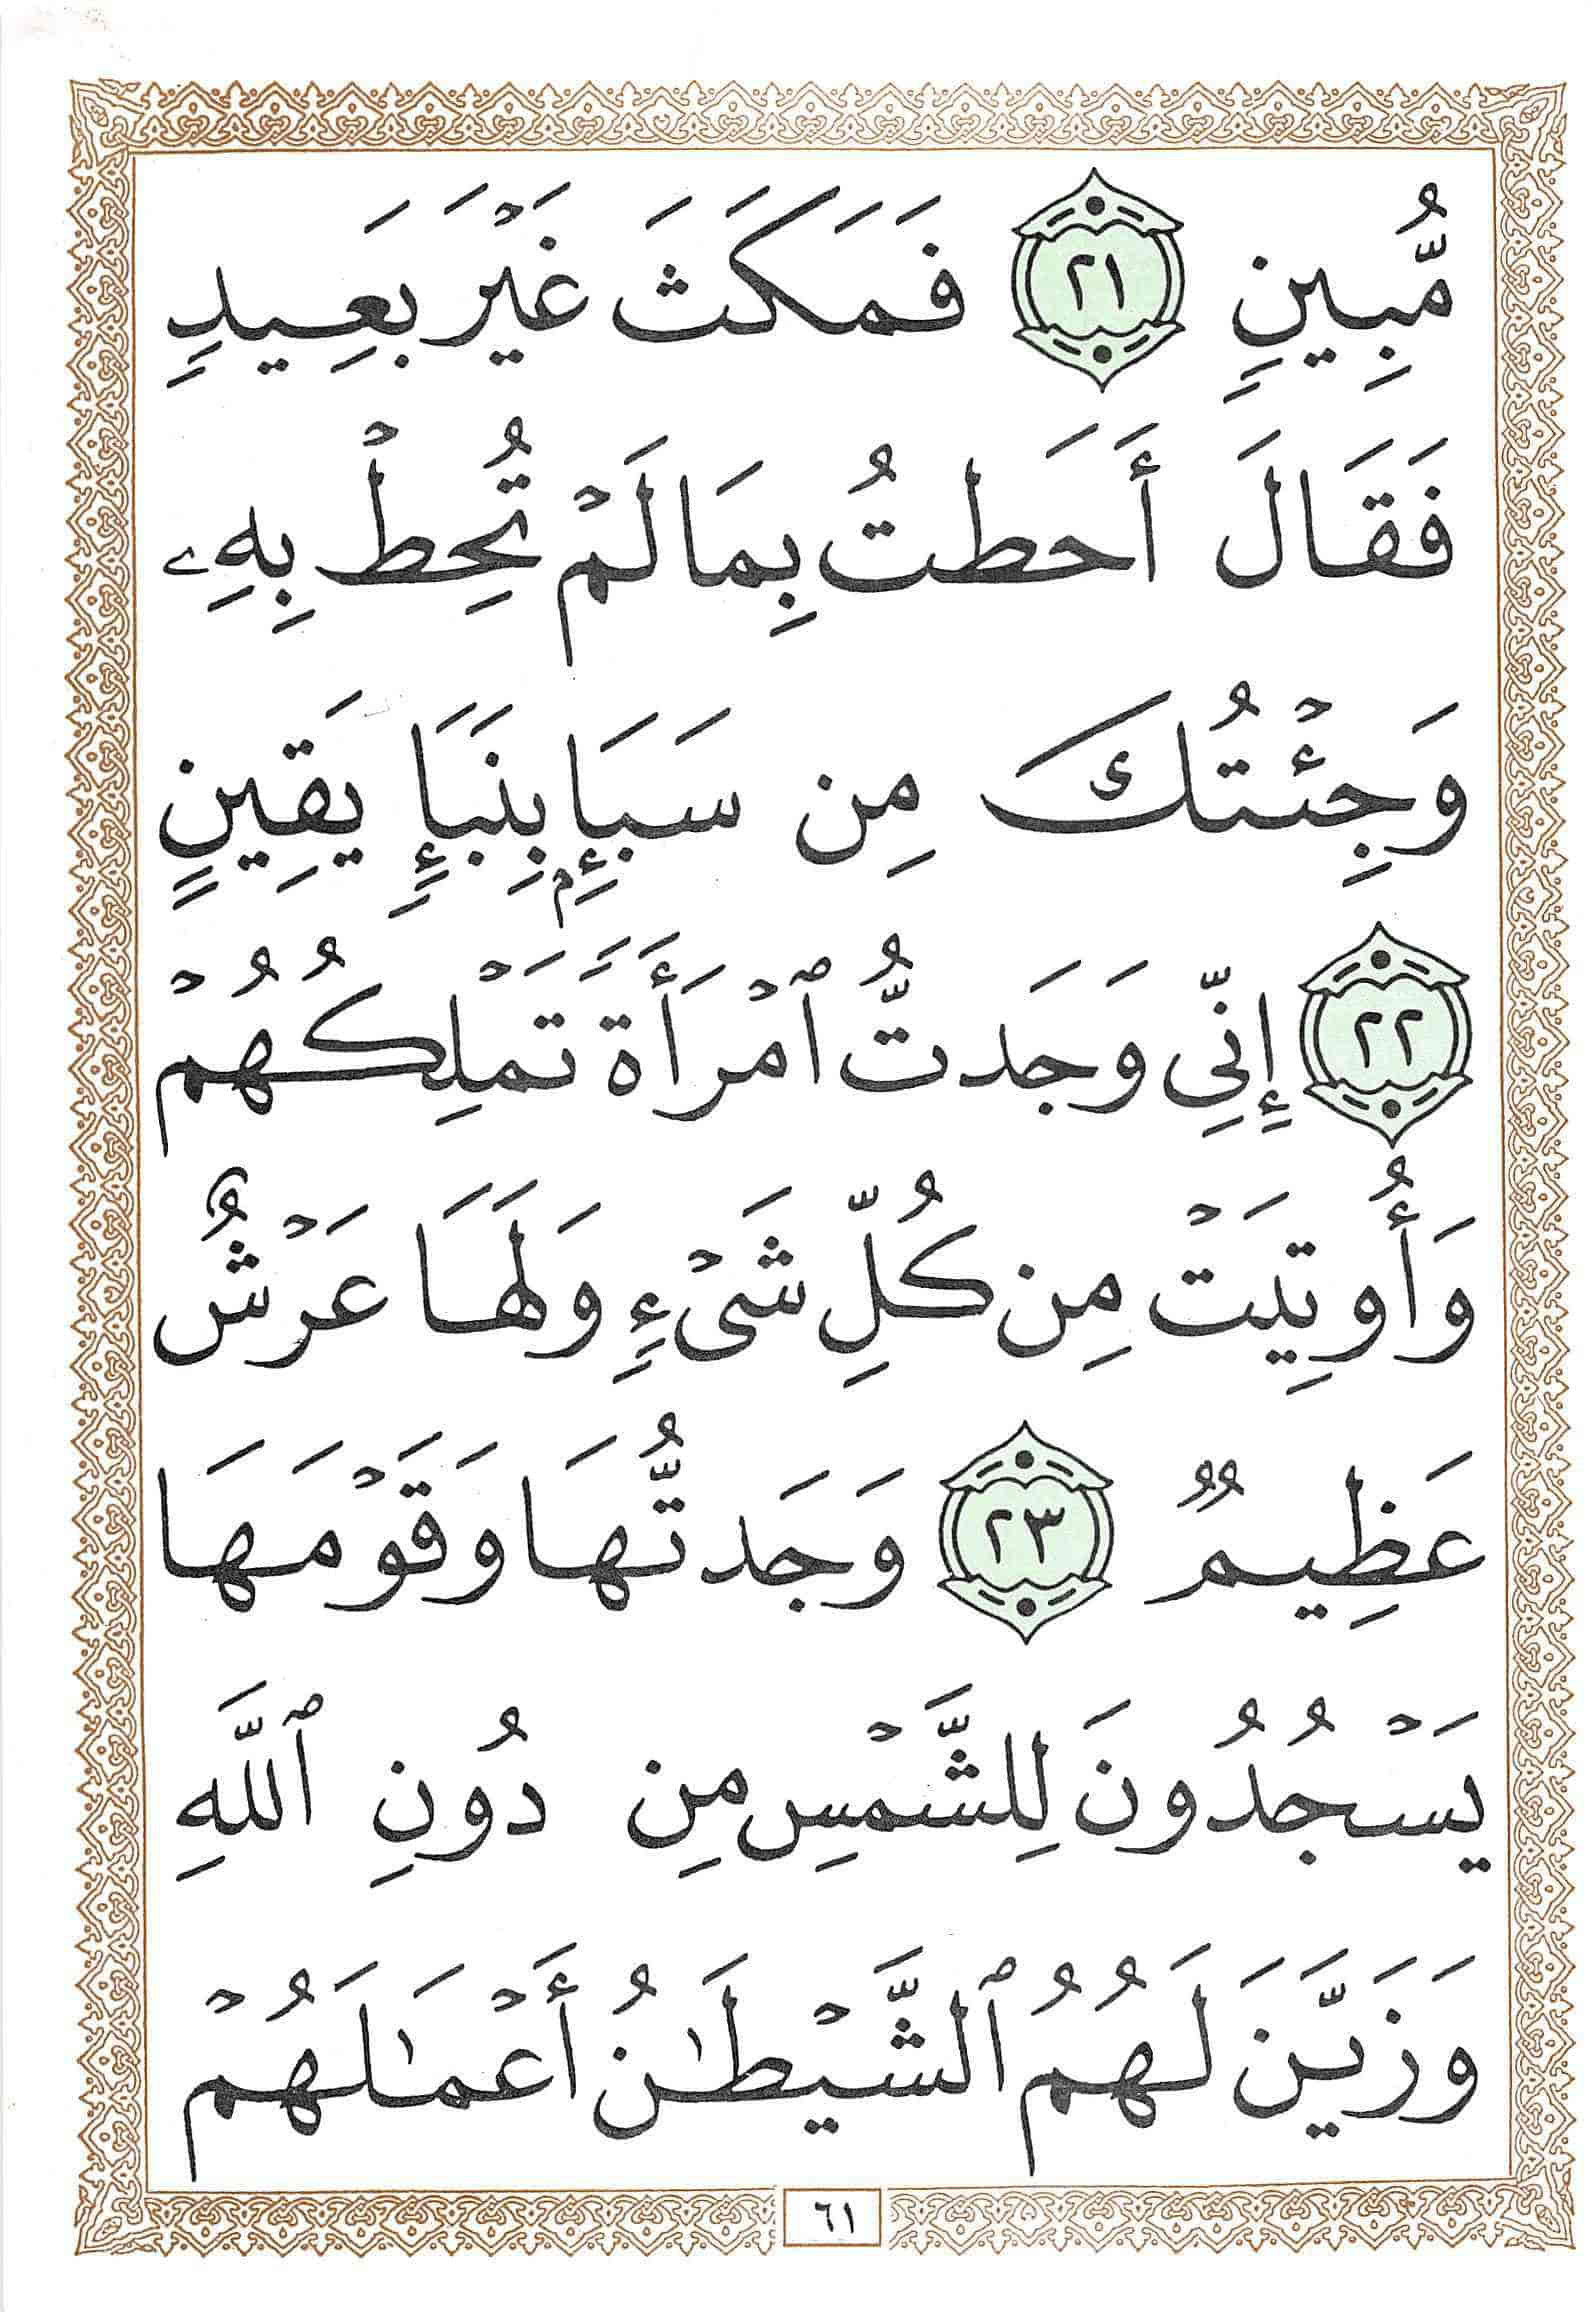 مُّبِينٍ ٢١ فَمَكَثَ غَيْرَ بَعِيدٍ
فَقَالَ أَحَطتُ بِمَا لَمْ تُحِطْ بِهِۦ
وَجِئْتُكَ مِن سَبَإٍۭ بِنَبَإٍ يَقِينٍ
٢٢ إِنِّى وَجَدتُّ ٱمْرَأَةً تَمْلِكُهُمْ
وَأُوتِيَتْ مِن كُلِّ شَىْءٍ وَلَهَا عَرْشٌ
عَظِيمٌ ٢٣ وَجَدتُّهَا وَقَوْمَهَا
يَسْجُدُونَ لِلشَّمْسِ مِن دُونِ ٱللَّهِ
وَزَيَّنَ لَهُمُ ٱلشَّيْطَـٰنُ أَعْمَـٰلَهُمْ
٦١